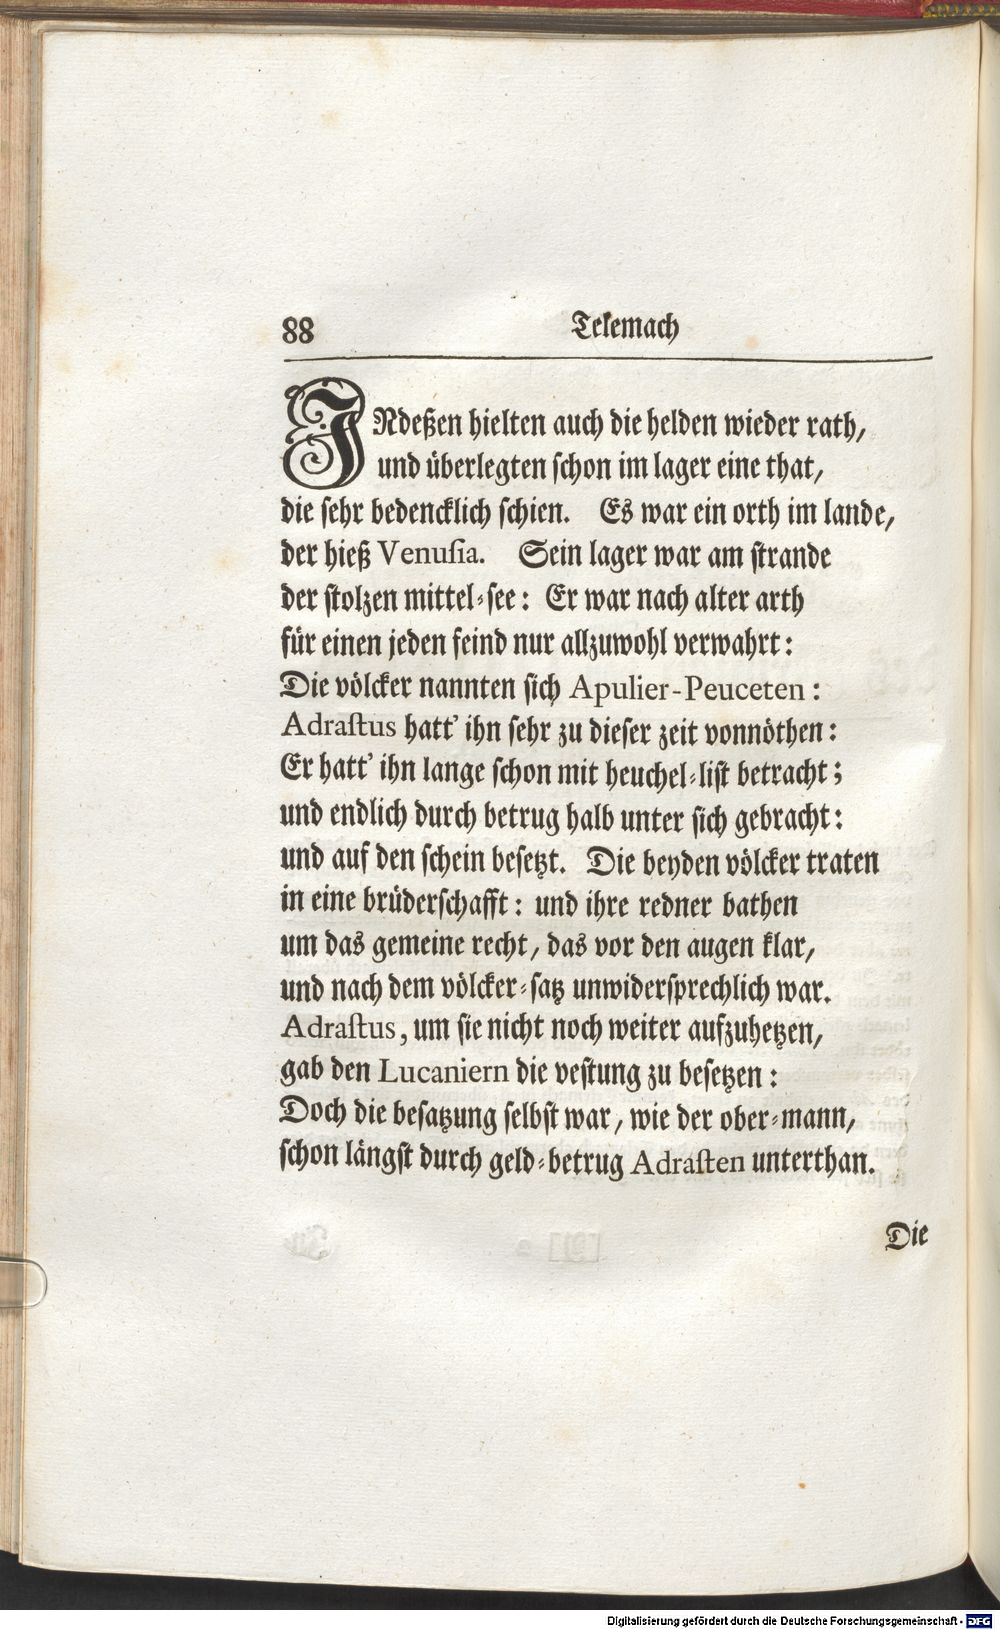 88 Telemach
INdeßen hielten auch die helden wieder rath,
und überlegten schon im lager eine that,
die sehr bedencklich schien. Es war ein orth im lande,
der hieß Venusia. Sein lager war am strande
der stolzen mittel-see: Er war nach alter arth
für einen jeden feind nur allzuwohl verwahrt:
Die völcker nannten sich Apulier-Peuceten:
Adrastus hatt' ihn sehr zu dieser zeit vonnöthen:
Er hatt' ihn lange schon mit heuchel-list betracht;
und endlich durch betrug halb unter sich gebracht:
und auf den schein besetzt. Die beyden völcker traten
in eine brüderschafft: und ihre redner bathen
um das gemeine recht, das vor den augen klar,
und nach dem völcker-satz unwidersprechlich war.
Adrastus, um sie nicht noch weiter aufzuhetzen,
gab den Lucaniern die vestung zu besetzen:
Doch die besatzung selbst war, wie der ober-mann,
schon längst durch geld-betrug Adrasten unterthan.
Die
Digitalisierung gefördert durch die Deutsche Forschungsgemeinschaft - DFG